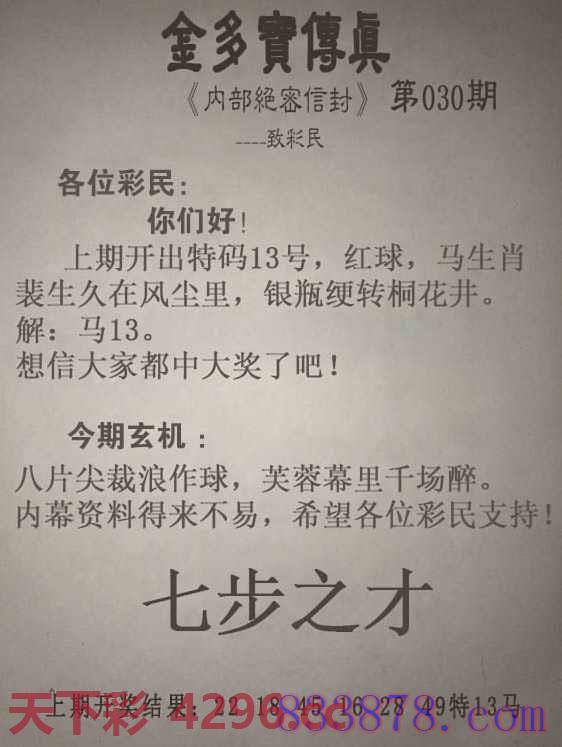 金多寶傳眞
《内部絕密信封》第030期
----致彩民
各位彩民：
你们好！
上期开出特码13号，红球，马生肖
裴生久在风尘里，银瓶绠转桐花井。
解：马13。
想信大家都中大奖了吧！
今期玄机：
八片尖裁浪作球，芙蓉幕里千场醉。
内幕资料得来不易，希望各位彩民支持！
七步之才
上期开奖结果：22 18 45 16 28 49特13马
天下彩 4296.cc 853878.com